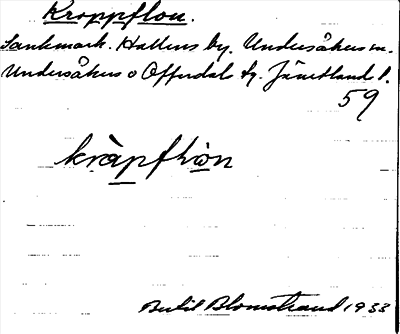 Kroppflon.
Sankmark. Hallens by. Undersåkers sn.
Undersåkers o Offerdals tg. Jämtlands l.
59
kràpflòn
Bertil Blomstrand 1933